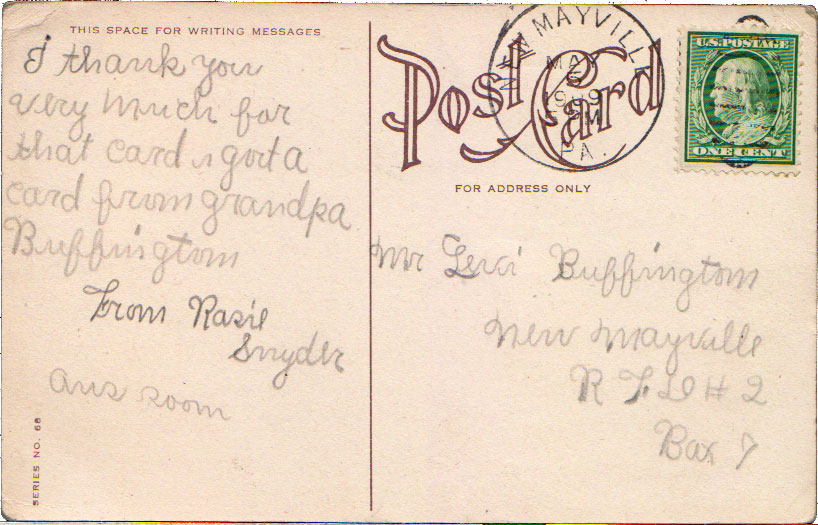 THIS SPACE FOR WRITING MESSAGES
I thank you
very much for
that card i got a
card from grandpa
Buffington
From Rasie
Snyder
ans soom
SERIES NO. 68
Post Card
FOR ADDRESS ONLY
NEW MAYVILLE
MAY
5
1909
PM
PA.
U.S. POSTAGE
ONE CENT
Mr Levi Buffington
New Mayville
R F D # 2
Box 7